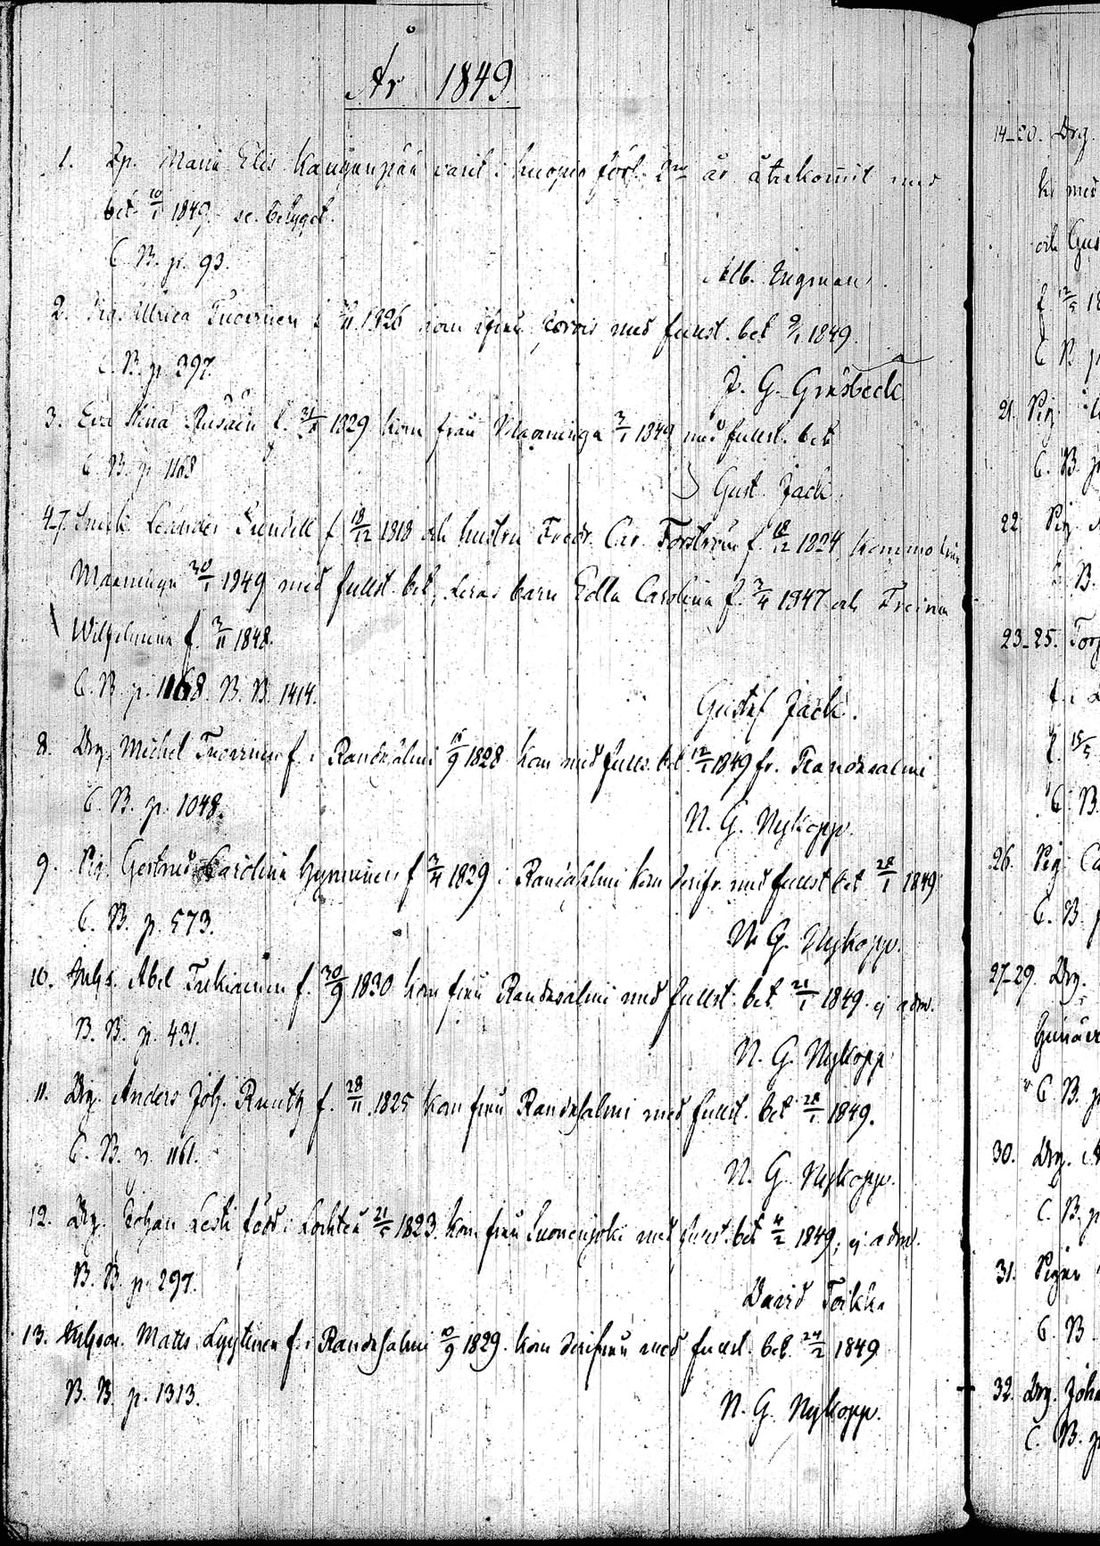 År 1849
1. Pp. Maria Elis Kauhanpää varit i Kuopio förs. 2ne år återkommit med
bet. 10/1 1849. se betyget.
C. B. p. 93.
Alb. Ingman.
2. Pig. Ullrica Tuovinen f. /11 1826 kom ifrån Jorois med fullst. bet 9/1 1849.
C. B. p. 397.
J. G. Gråsbeck
3. Eva Stina Rusain f. 1829 kom från Maaninga 3/1 1849 med fullst. bet
C. B. p. 1168
Gust. Jack.
4-7. Leander Sundell f. 18/12 1818 och hustru Fredr. Car. Forström f. 18/12 1824, komma från
Maaninga 30/1 1849 med fullst. bet, deras barn Edla Carolina f. 3/4 1847 och Freina
Wilhelmina f. 3/11 1848.
C. B. p. 1168. B. B. 1414.
Gustaf Jack.
8. Drg. Michel Tuovinen f. i Randasalmi 18/9 1828 kom med fullst. bet. 12/1 1849 fr. Randasalmi
C. B. p. 1048.
N. G. Nykopp.
9. Pig. Gertrud Carolina Hynninen f 3/4 1829 i Randasalmi kom derifr. med fullst bet 28/1 1849
C. B. p. 573.
N. G. Nykopp.
10. Abel Tukiainen f. 30/9 1830 kom från Randasalmi med fullst. bet 21/1 1849 ej adm.
B. B. p. 431.
N. G. Nykopp
11. Drg. Anders Joh. Runth f. 28/11 1825 kom från Randasalmi med fullst. bet 28/1 1849.
C. B. p. 1161.
N. G. Nykopp.
12. Drg. Johan Lesti född i Lochteå 21/ 1823. kom från Suonenjoki med fullst. bet 4/2 1849; ej adm.
B. B. p. 297.
David Toikka
13. Matts Lyytinen f. i Randasalmi 10/9 1829. kom derifrån med fullst. bet. 24/2 1849
B. B. p. 1313.
N. G. Nykopp.
14-20. Drg.
och Gus
C. B. p
21. Pig
C. B. p
22. Pig.
C. B.
23-25. Torp
C. B.
26. Pig. Ca
C. B. p
27-29. Drg.
C. B. p
30. Drg. A
C. B. p
31. Pigan
C. B.
32. Drg. Joha
C. B. p